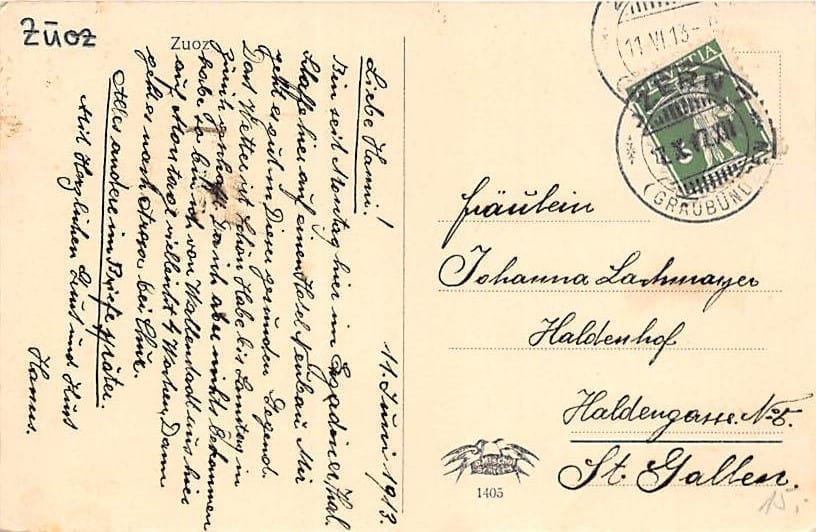 Zūoz
Zuoz
11 Juni 1913.
Liebe Hanni!
Bin seit Montag hier im Engadiner Thal.
Schaffe hier auf einem Hotel Neubau Mir
geht es gut in Dieser gesunden Gegend.
Das Wetter ist schön Habe bis Samstag in
Zürich gehofft Da ich aber nichts bekommen
habe so bin ich von Wallenstadt aus hier
auf Montage vielleicht 4 Wochen, Dann
geht es nach Arosa bei Chur.
Alles andere im Briefe später.
Mit Herzlichen Gruss und Kuss
Hannes.
11.VI.13-
ZERN
(GRAUBÜND
HELVETIA
5
Fräulein
Johanna Lachmayer
Haldenhof
Haldengasse. No 5.
St. Gallen.
1405
15,-